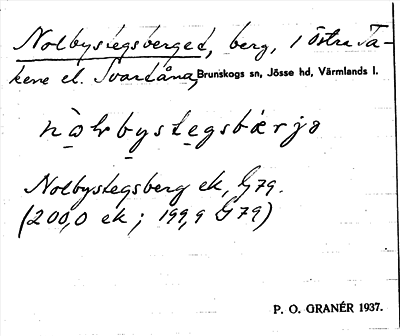 Nolbystegsberget, berg, i Östra Ta-
kene el. Svartåna, Brunskogs sn, Jösse hd, Värmlands l.
nolbystegsbærjə
Nolbystegsberg ek, G79.
(200,0 ek; 199,9 G79)
P. O. GRANÉR 1937.